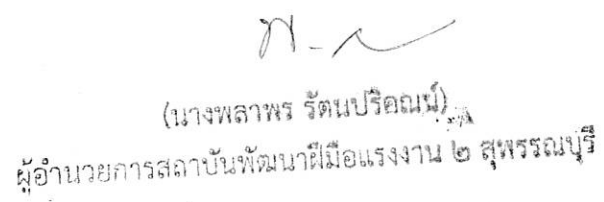 (นางพลาพร รัตนปริคณน์)
ผู้อำนวยการสถาบันพัฒนาฝีมือแรงงาน ๒ สุพรรณบุรี